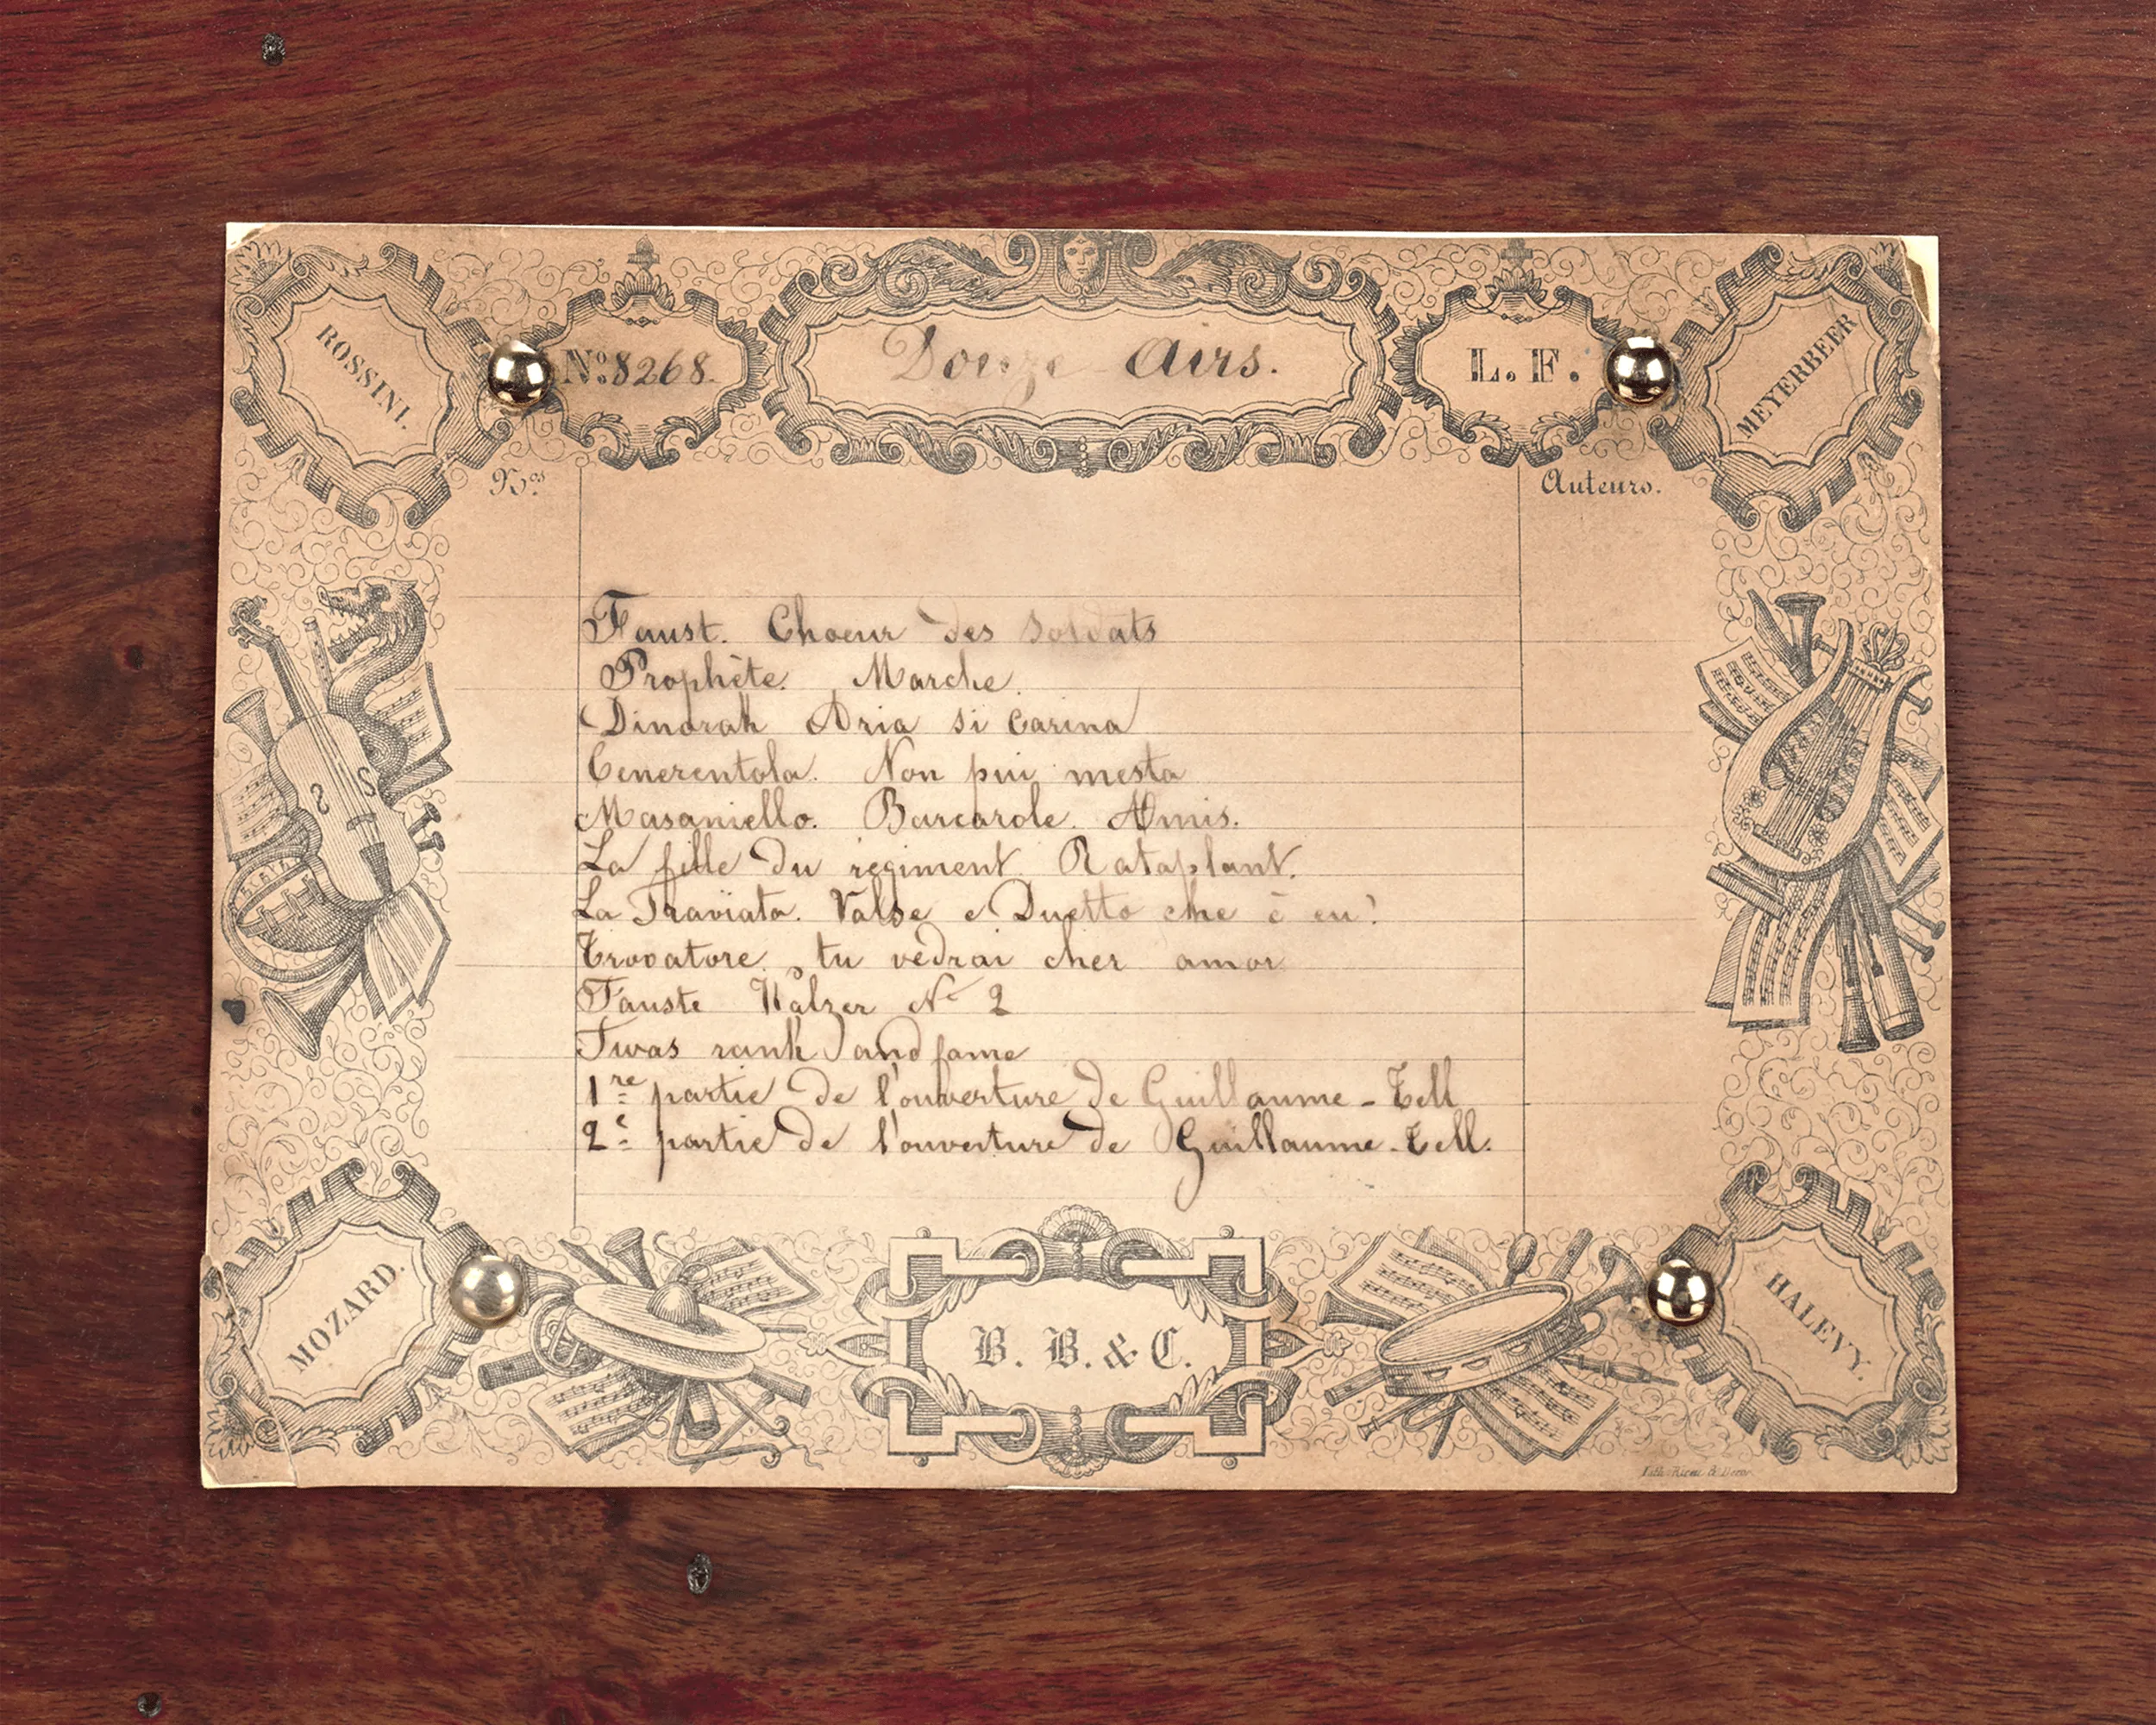 ROSSINI.
Nº 8268.
Douze Airs.
L. F.
MEYERBEER
Nos
Auteurs.
Faust. Choeur des Soldats
Prophète. Marche.
Dinorah Aria si Carina
Cenerentola. Non piu mesta
Masaniello. Barcarole. Amis.
La fille du régiment. Rataplant.
La Traviata. Valse e Duetto che è cu?
Trovatore. tu vedrai cher amor
Fauste Walzer Nº 2
Twas rank and fame
1re partie de l'ouverture de Guillaume-Tell
2e partie de l'ouverture de Guillaume-Tell.
MOZARD.
B. B. & C.
HALEVY.
Lith.